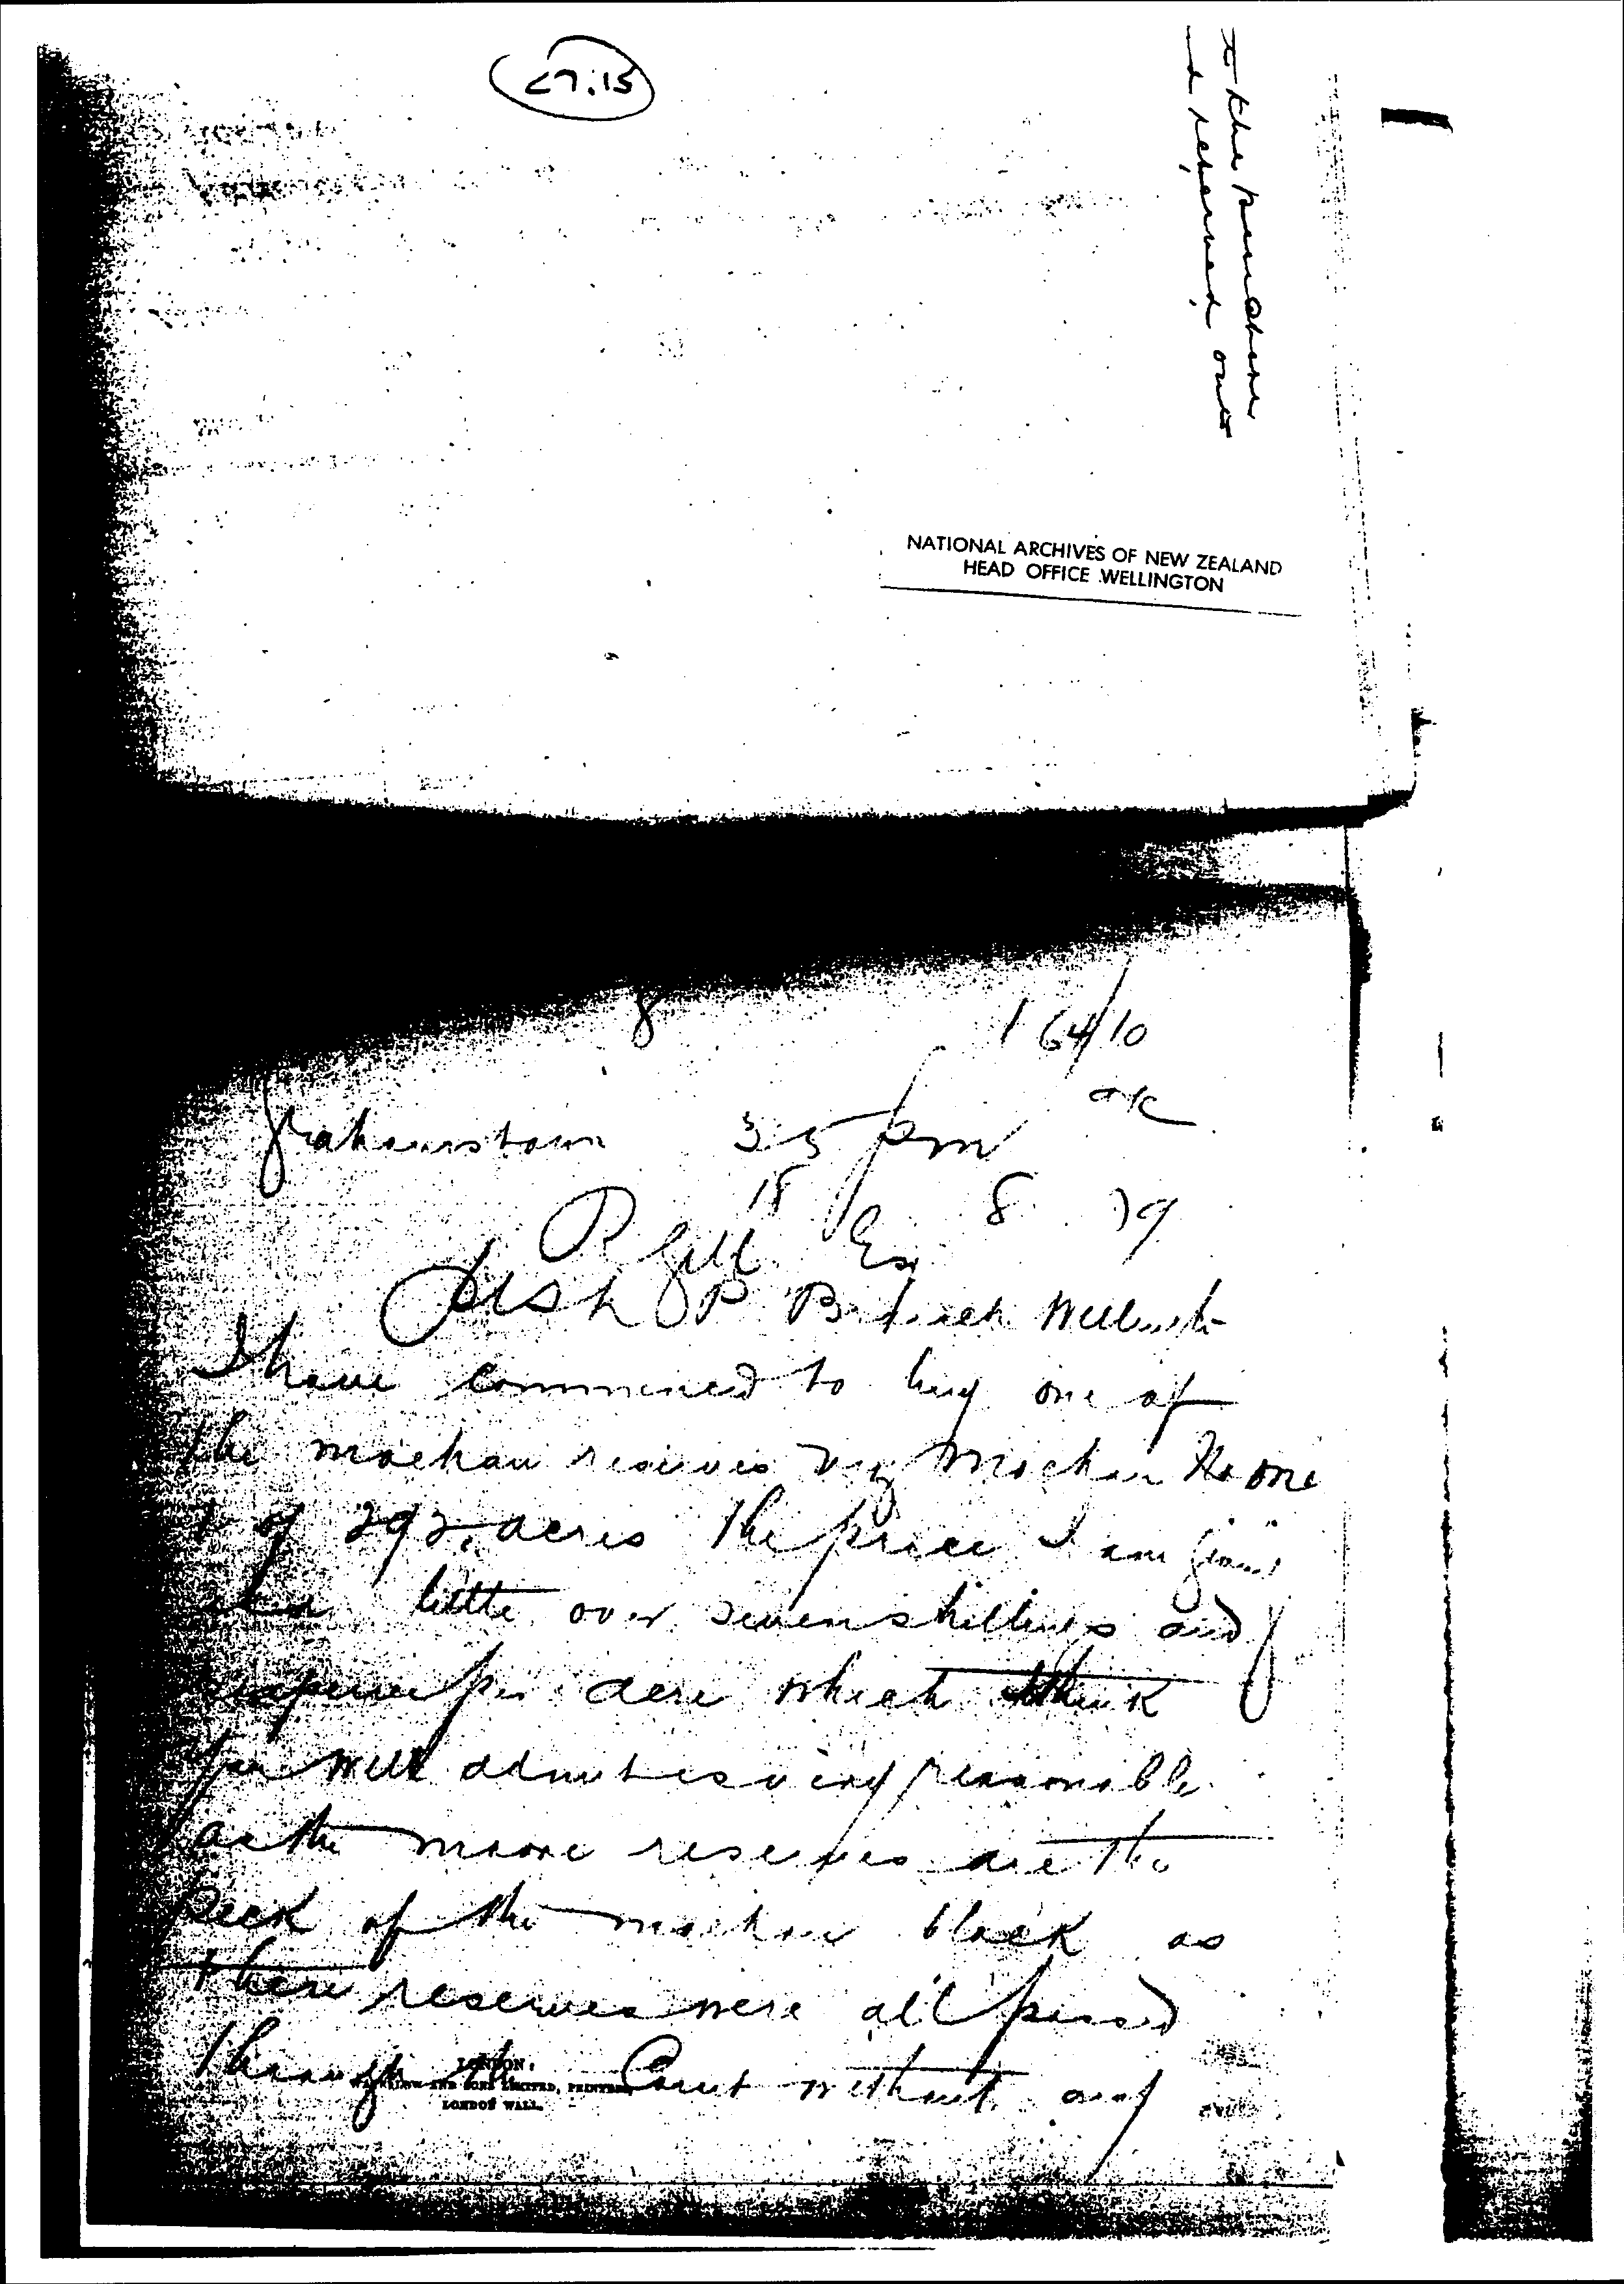 27.15
to the
reserved out
NATIONAL ARCHIVES OF NEW ZEALAND
HEAD OFFICE WELLINGTON
164/10
OK
Grahamstown 3 5 pm
18 8 79
R Gill Esq
Wellingtn
I have commenced to buy one of
the moehau reserves viz moehau No one
of 292 acres the price I am giving
little over seven shillings and
per acre which I think
you will admit is very reasonable
as the maori reserves are the
Pick of the moehau block as
these reserves were all passed
through the Court without any
LONDON:
WATERLOW AND SONS LIMITED, PRINTERS,
LONDON WALL.